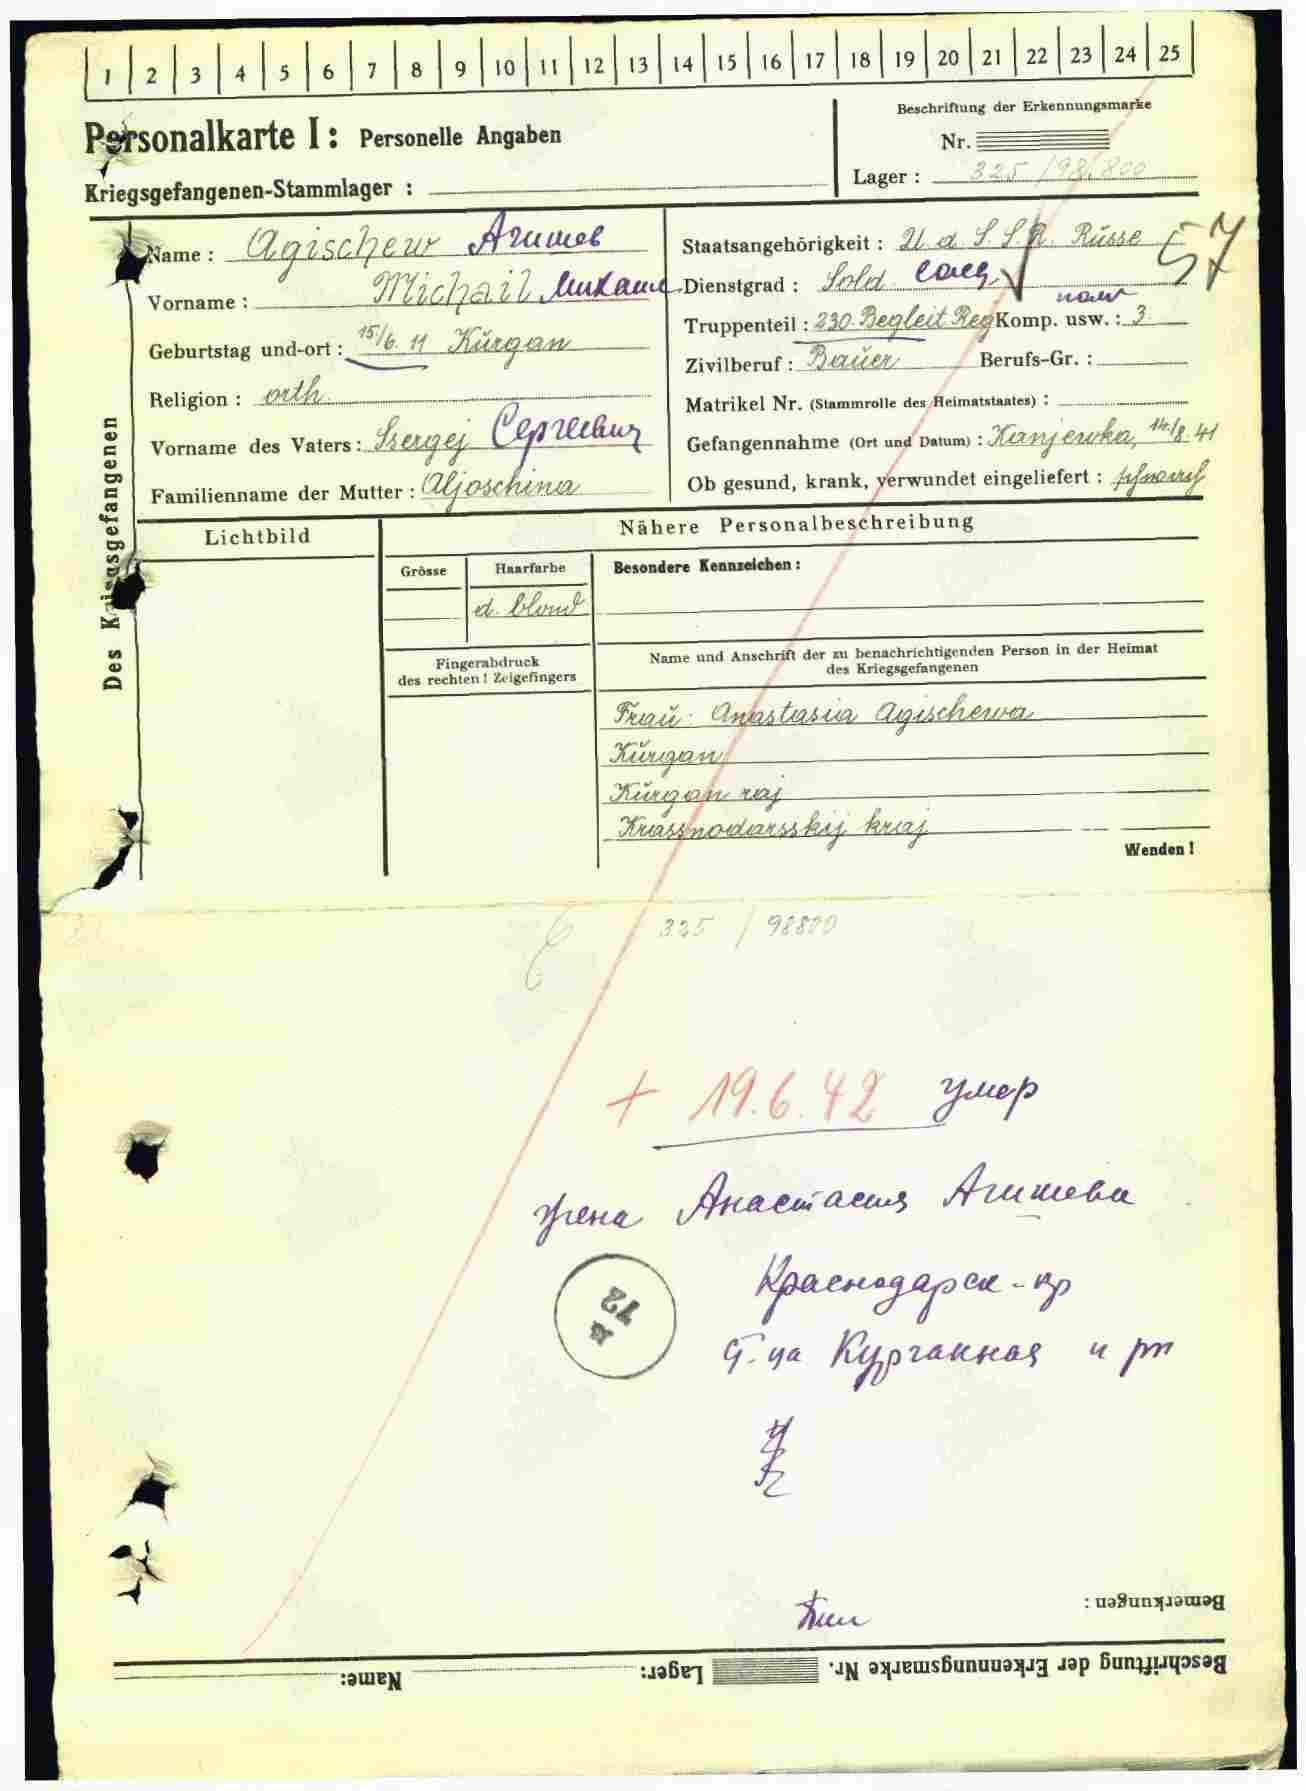 1 2 3 4 5 6 7 8 9 10 11 12 13 14 15 16 17 18 19 20 21 22 23 24 25
Personalkarte I: Personelle Angaben
Kriegsgefangenen-Stammlager :
Beschriftung der Erkennungsmarke
Nr.
Lager : 325 / 98.800
Des Kriegsgefangenen
Name : Agischew Агишев
Vorname : Michail Михаил
Geburtstag und-ort : 15/6. 11 Kŭrgan
Religion : orth.
Vorname des Vaters : Ssergej Сергеевич
Familienname der Mutter : Aljoschina
Staatsangehörigkeit : U. d. S. S. R. Rŭsse
57
Dienstgrad : Sold. солд
Truppenteil : 230. Begleit. Reg Komp. usw. : 3.
Zivilberuf : Baŭer Berufs-Gr. :
Matrikel Nr. (Stammrolle des Heimatstaates) :
Gefangennahme (Ort und Datum) : Kanjewka, 14./8. 41
Ob gesund, krank, verwundet eingeliefert :
Lichtbild
Nähere Personalbeschreibung
Grösse
Haarfarbe
d. blond
Besondere Kennzeichen :
Fingerabdruck
des rechten ! Zeigefingers
Name und Anschrift der zu benachrichtigenden Person in der Heimat
des Kriegsgefangenen
Fraŭ: Anastasia Agischewa
Kŭrgan
Kŭrgan raj
Krassnodarsskij kraj
Wenden !
325 / 98800
+ 19.6.42 умер
жена Анастасия Агишева
Краснодарск-кр
ст-ца Курганная и рн
72
Bemerkungen :
Beschriftung der Erkennungsmarke Nr. Lager: Name: